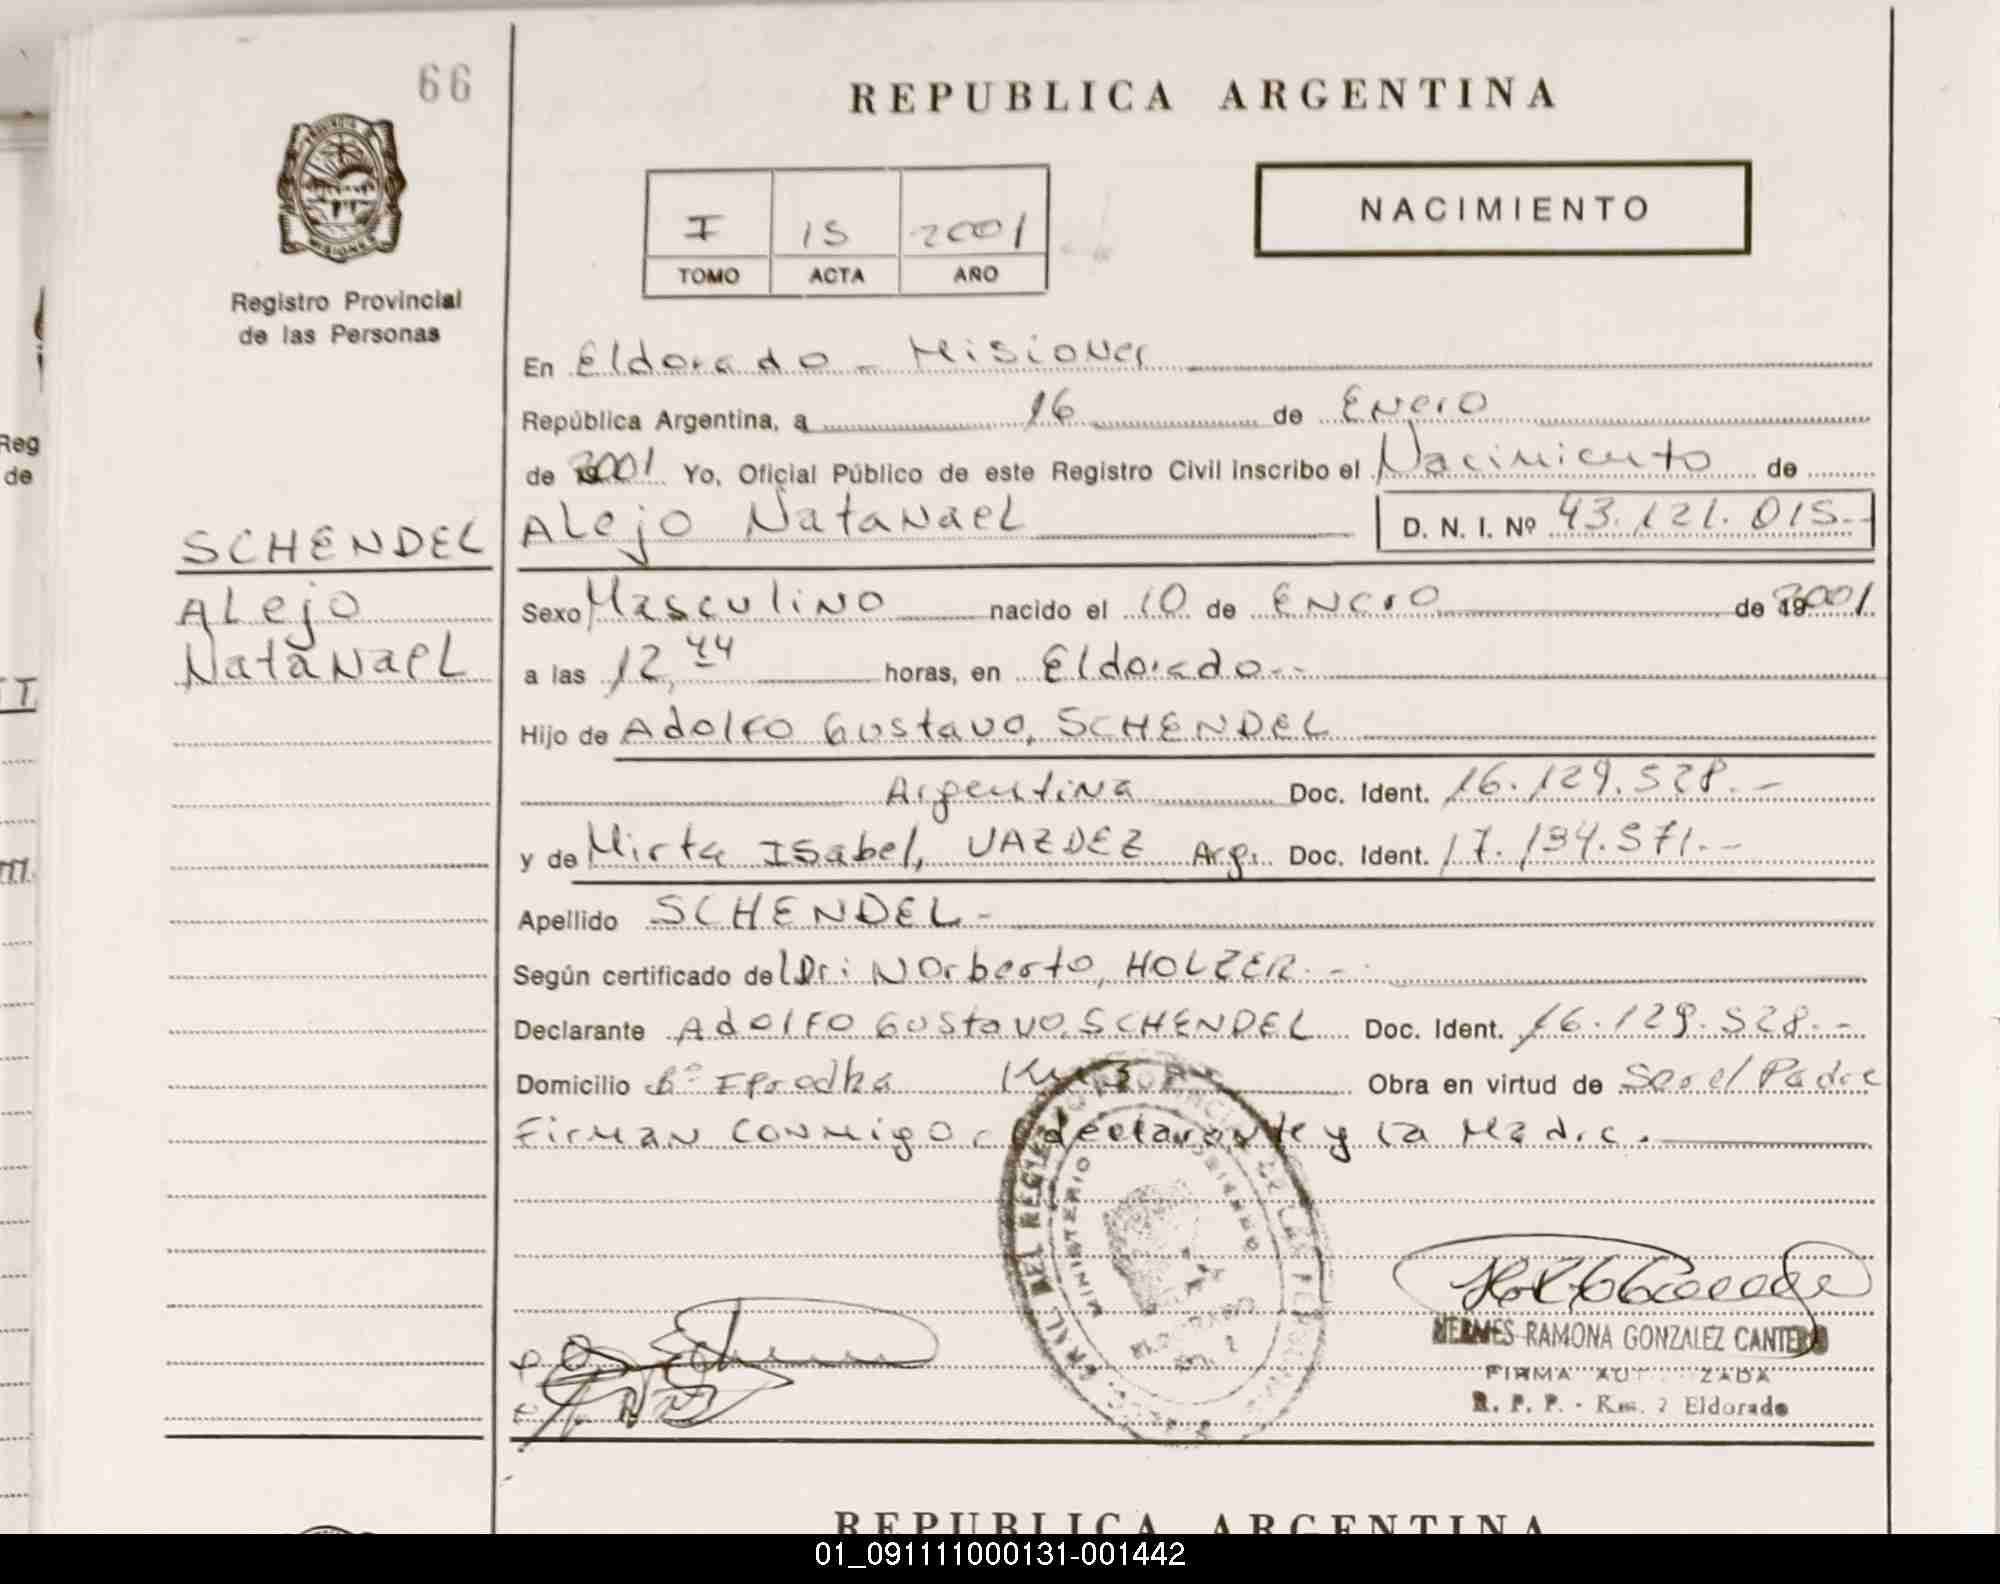 66
REPUBLICA ARGENTINA
NACIMIENTO
I 15 2001
TOMO ACTA AÑO
MISIONES
Registro Provincial
de las Personas
En Eldorado - Misiones
República Argentina, a 16 de Enero
de 2001 Yo, Oficial Público de este Registro Civil inscribo el Nacimiento de
SCHENDEL
Alejo Natanael D. N. I. Nº 43.121.015.-
Alejo
Natanael
Sexo Masculino nacido el 10 de Enero de 2001
a las 12,44 horas, en Eldorado.--
Hijo de Adolfo Gustavo, SCHENDEL
Argentina Doc. Ident. 16.129.528.-
y de Mirta Isabel, VAZDEZ Arg. Doc. Ident. 17.134.571.-
Apellido SCHENDEL-
Según certificado del Dr: Norberto, HOLZER.-
Declarante Adolfo Gustavo, SCHENDEL Doc. Ident. 16.129.528.-
Domicilio Obra en virtud de Ser el Padre
Firman conmigo el declarante y la Madre.
MINISTERIO
HERMES RAMONA GONZALEZ CANTERO
FIRMA AUT ZADA
R. P. P. - Km. 2 Eldorado
REPUBLICA ARGENTINA
01_091111000131-001442